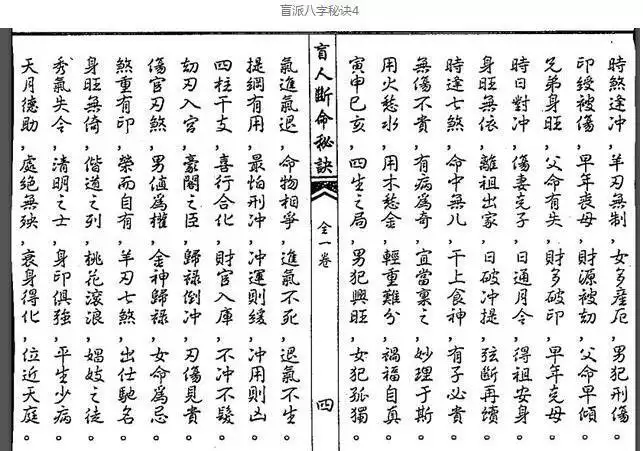 盲派八字秘诀4
時煞逢冲，羊刃無制，女多產厄，男犯刑傷。
印綬被傷，早年喪母，財源被劫，父命早傾。
兄弟身旺，父命有失，財多破印，早年克母。
時日對冲，傷妻克子，日通月令，得祖安身。
身旺無依，離祖出家，日破冲提，弦斷再續。
時逢七煞，命中無兒，干上食神，有子必貴。
無傷不貴，有病為奇，宜當裏之，妙理于斯。
用火愁水，用木愁金，輕重難分，禍福自真。
寅申巳亥，四生之局，男犯興旺，女犯孤獨。
盲人斷命秘訣 全一卷 四
氣進氣退，命物相爭，進氣不死，退氣不生。
提綱有用，最怕刑冲，冲運則緩，冲用則凶。
四柱干支，喜行合化，財官入庫，不冲不發。
刧刃入宮，豪閣之臣，歸祿倒冲，刃傷見貴。
傷官刃煞，男值為權，金神歸祿，女命為忌。
煞重有印，榮而自有，羊刃七煞，出仕馳名。
身旺無倚，偕道之列，桃花滾浪，娼妓之徒。
秀氣失令，清明之士，身印俱強，平生少病。
天月德助，處絕無殃，衰身得化，位近天庭。